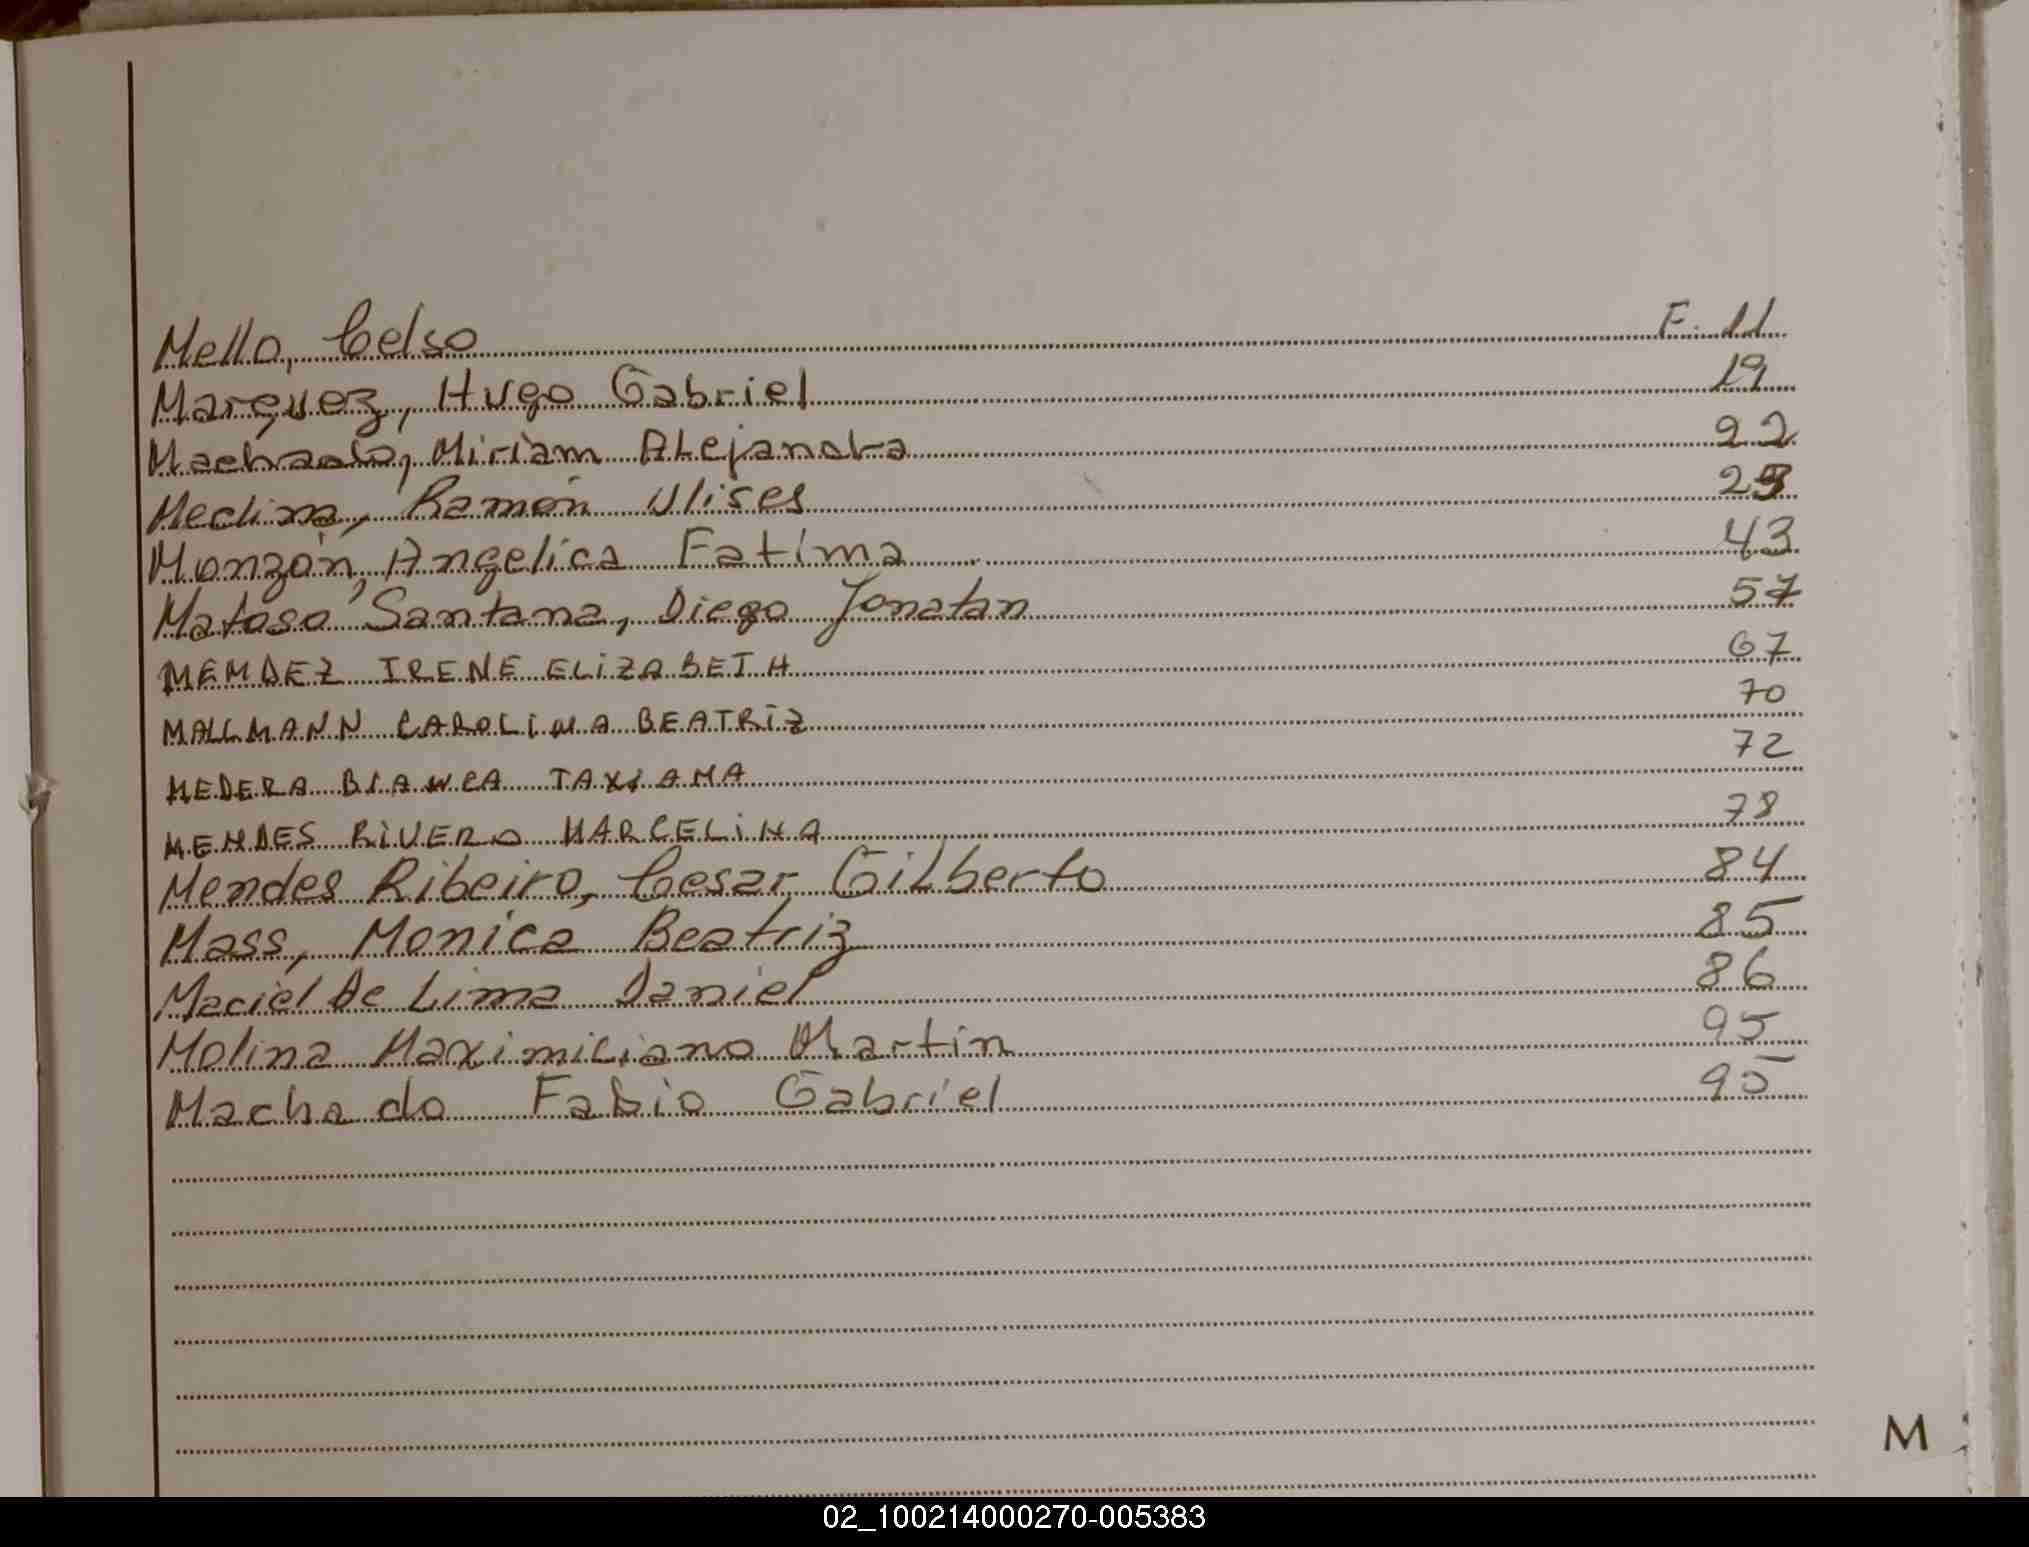 Mello, Celso F. 11
Marquez, Hugo Gabriel 19
Machado, Miriam Alejandra 22
Medina, Ramón Ulises
Monzón, Angelica Fatima 43
Matoso Santana, Diego Jonatan 57
MENDEZ IRENE ELIZABETH 67
MALLMANN CAROLINA BEATRIZ 70
MEDERA BIANCA 72
MENDES RIVERO MARCELINA 78
Mendes Ribeiro, Cesar Gilberto 84
Mass, Monica Beatriz 85
Maciel De Lima Daniel 86
Molina Maximiciano Martin 95
Machado Fabio Gabriel 95
M
02_100214000270-005383